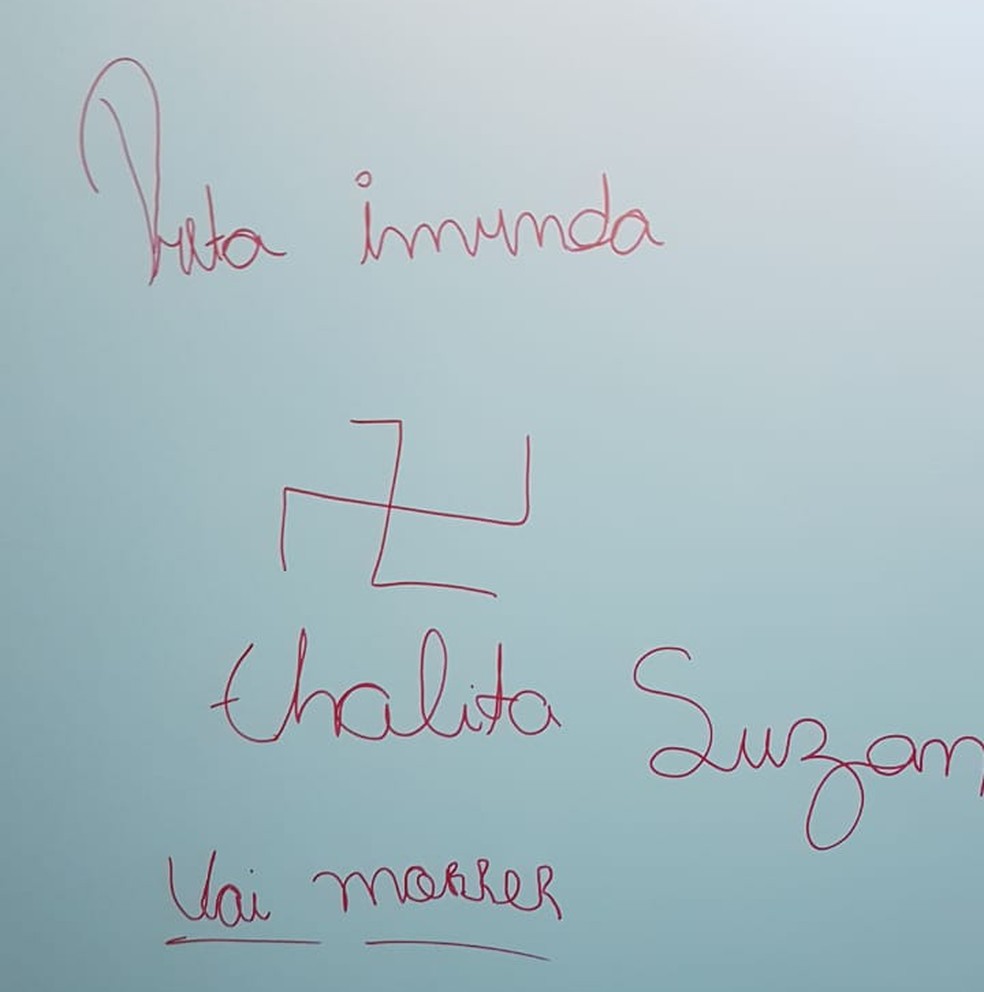 Preta imunda
Thalita Suzan
Vai morrer